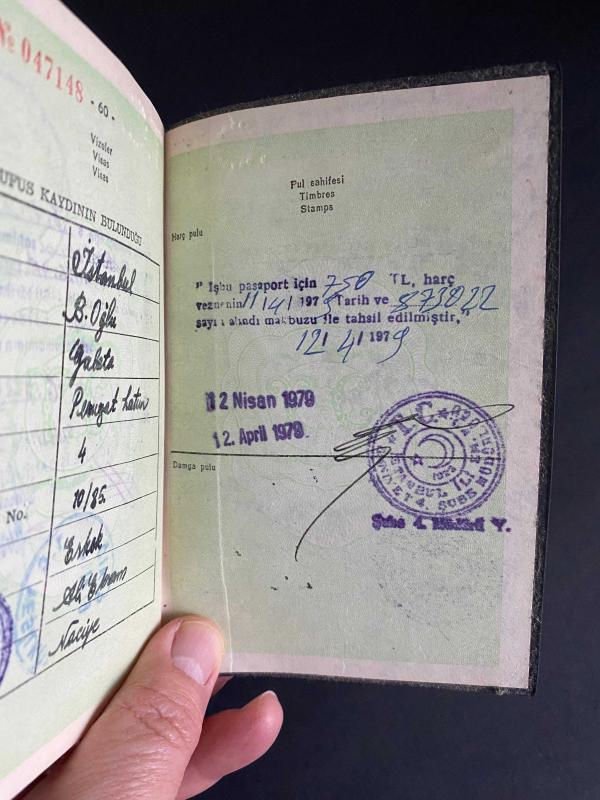 № 047148
- 60 -
Vizeler
Visas
Visas
NUFUS KAYDININ BULUNDUĞU
İstanbul
B. Oğlu
Galata
4
10/85
No.
Erkek
Ali Ekrem
Naciye
Pul sahifesi
Timbres
Stamps
Harç pulu
" İşbu pasaport için 750 TL. harç
veznenin 11/4/1979 Tarih ve 873822
sayılı alındı makbuzu ile tahsil edilmiştir,"
12/4/1979
12 Nisan 1979
12. April 1979.
Damga pulu
T.C.
İSTANBUL
Şube 4. Müdürü Y.